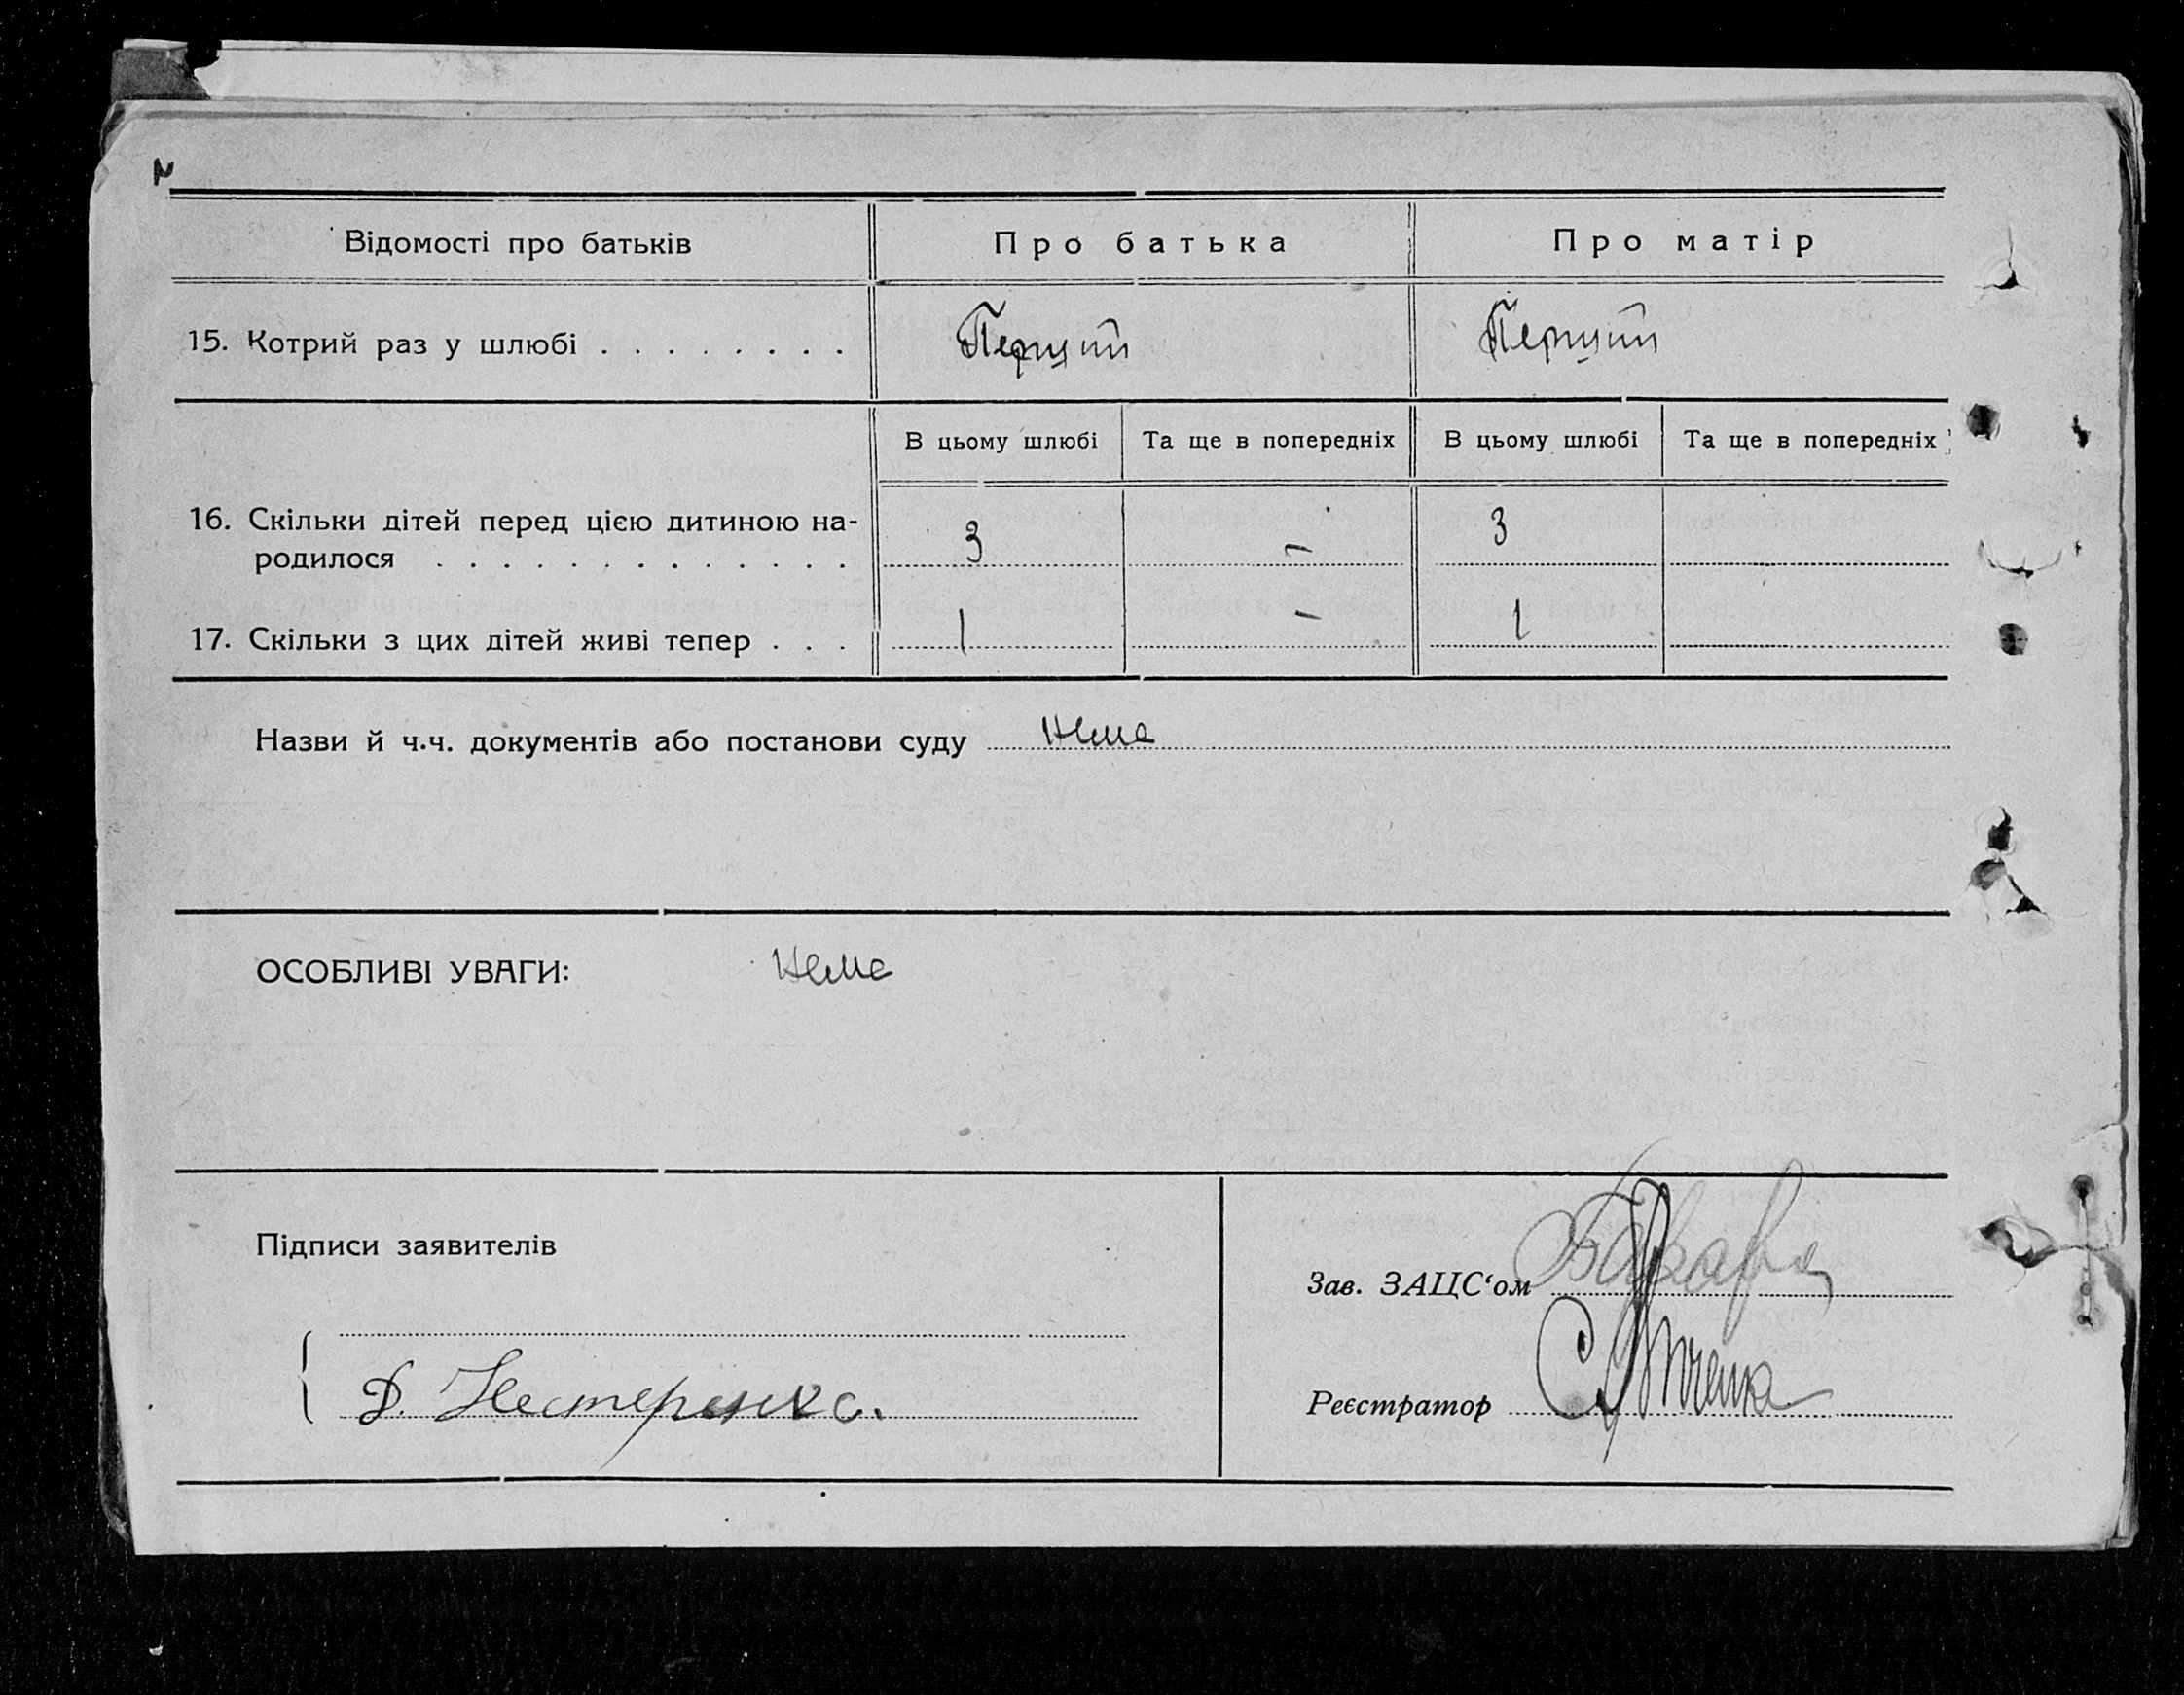 Відомості про батьків
Про батька
Про матір
15. Котрий раз у шлюбі
Перший
Перший
В цьому шлюбі
Та ще в попередніх
В цьому шлюбі
Та ще в попередніх
16. Скільки дітей перед цією дитиною на-
родилося
3
–
3
17. Скільки з цих дітей живі тепер . . .
1
–
1
Назви й ч.ч. документів або постанови суду
нема
ОСОБЛИВІ УВАГИ:
нема
Підписи заявителів
Д. Нестеренко.
Зав. ЗАЦС‘ом
Реєстратор